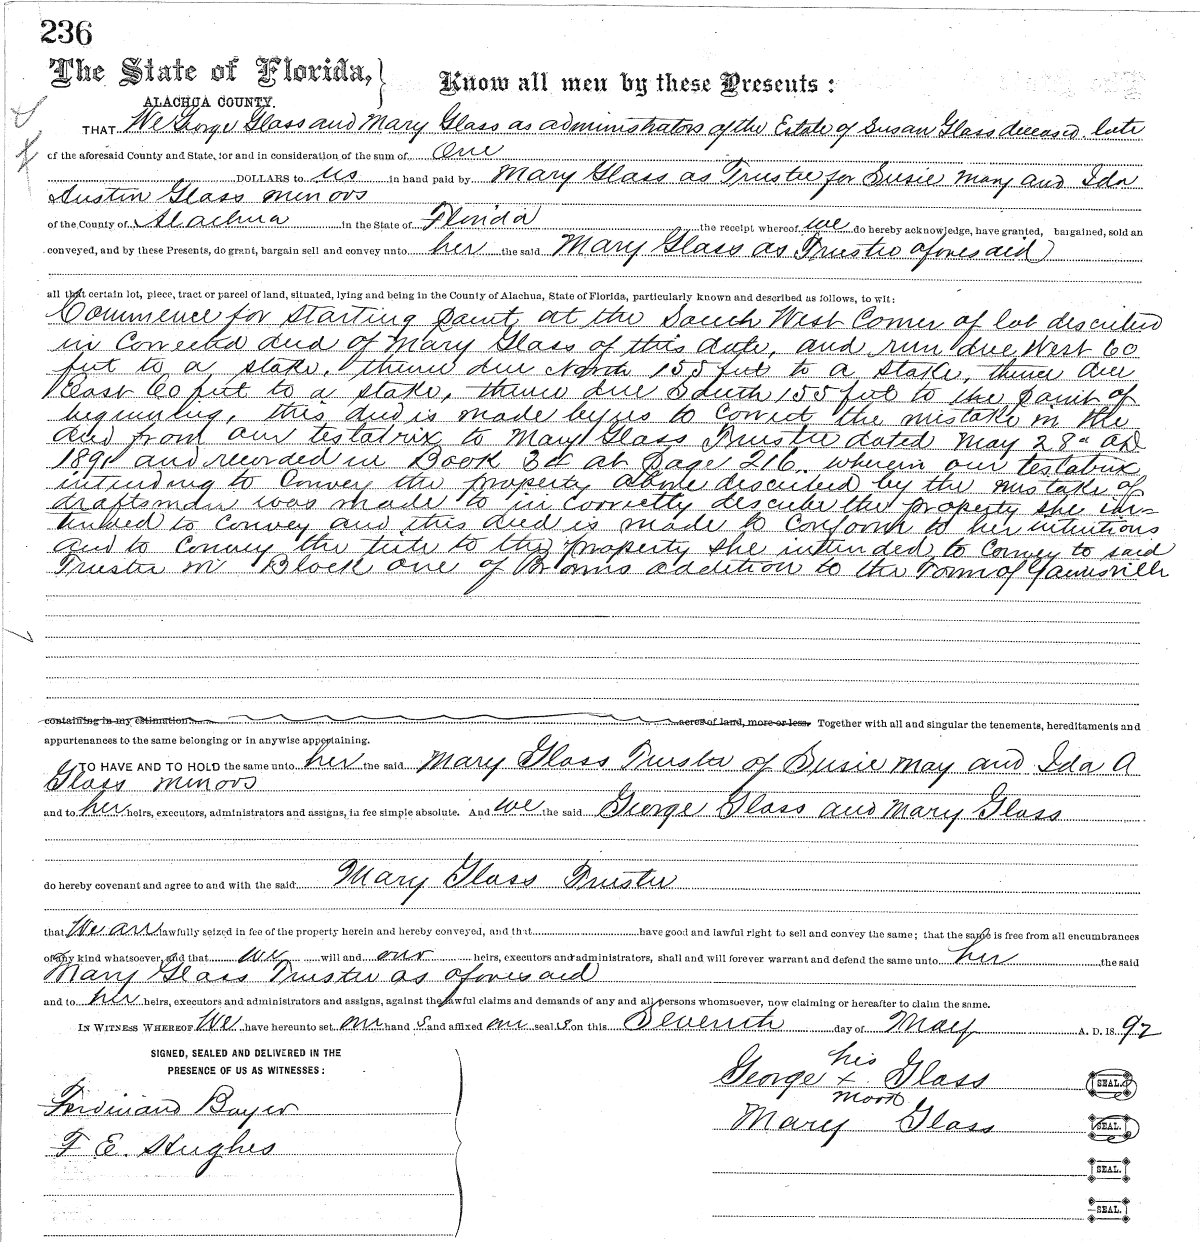 236
The State of Florida,} Know all men by these Presents:
ALACHUA COUNTY.
THAT We George Glass and Mary Glass as administrators of the Estate of Susan Glass deceased late
of the aforesaid County and State, for and in consideration of the sum of One
DOLLARS to us in hand paid by Mary Glass as Trustee for Susie May and Ida
Austin Glass minors
of the County of Alachua in the State of Florida the receipt whereof we do hereby acknowledge, have granted, bargained, sold an
conveyed, and by these Presents, do grant, bargain sell and convey unto her the said Mary Glass as Trustee aforesaid
all that certain lot, piece, tract or parcel of land, situated, lying and being in the County of Alachua, State of Florida, particularly known and described as follows, to wit:
Commence for starting point at the South West Corner of lot described
in Corrected deed of Mary Glass of this date, and run due West 60
feet to a stake, thence due North 155 feet to a stake, thence due
East 60 feet to a stake, thence due South 155 feet to the point of
beginning, this deed is made by us to correct the mistake in the
deed from our testatrix to Mary Glass Trustee dated May 28" AD
1891 and recorded in Book 34 at page 216. wherein our testatrix
intending to Convey the property above described by the mistake of
draftsman was made to in correctly describe the property she in-
tended to Convey and this deed is made to Conform to her intentions
and to Convey the title to the property she intended to Convey to said
Trustee in Block one of Browns addition to the Town of Gainesville
containing in my estimation acres of land, more or less. Together with all and singular the tenements, hereditaments and
appurtenances to the same belonging or in anywise appertaining.
TO HAVE AND TO HOLD the same unto her the said Mary Glass Trustee of Susie May and Ida A
Glass minors
and to her heirs, executors, administrators and assigns, in fee simple absolute. And we the said George Glass and Mary Glass
do hereby covenant and agree to and with the said Mary Glass Trustee
that We are lawfully seized in fee of the property herein and hereby conveyed, and that have good and lawful right to sell and convey the same; that the same is free from all encumbrances
of any kind whatsoever, and that we will and our heirs, executors and administrators, shall and will forever warrant and defend the same unto her the said
Mary Glass Trustee as aforesaid
and to her heirs, executors and administrators and assigns, against the lawful claims and demands of any and all persons whomsoever, now claiming or hereafter to claim the same.
IN WITNESS WHEREOF We have hereunto set our hand s and affixed our seal s on this Seventh day of May A. D. 18 92
SIGNED, SEALED AND DELIVERED IN THE
PRESENCE OF US AS WITNESSES:
his
George x Glass SEAL.
mark
Ferdinand Bayer
Mary Glass SEAL.
F E. Hughes
SEAL.
SEAL.